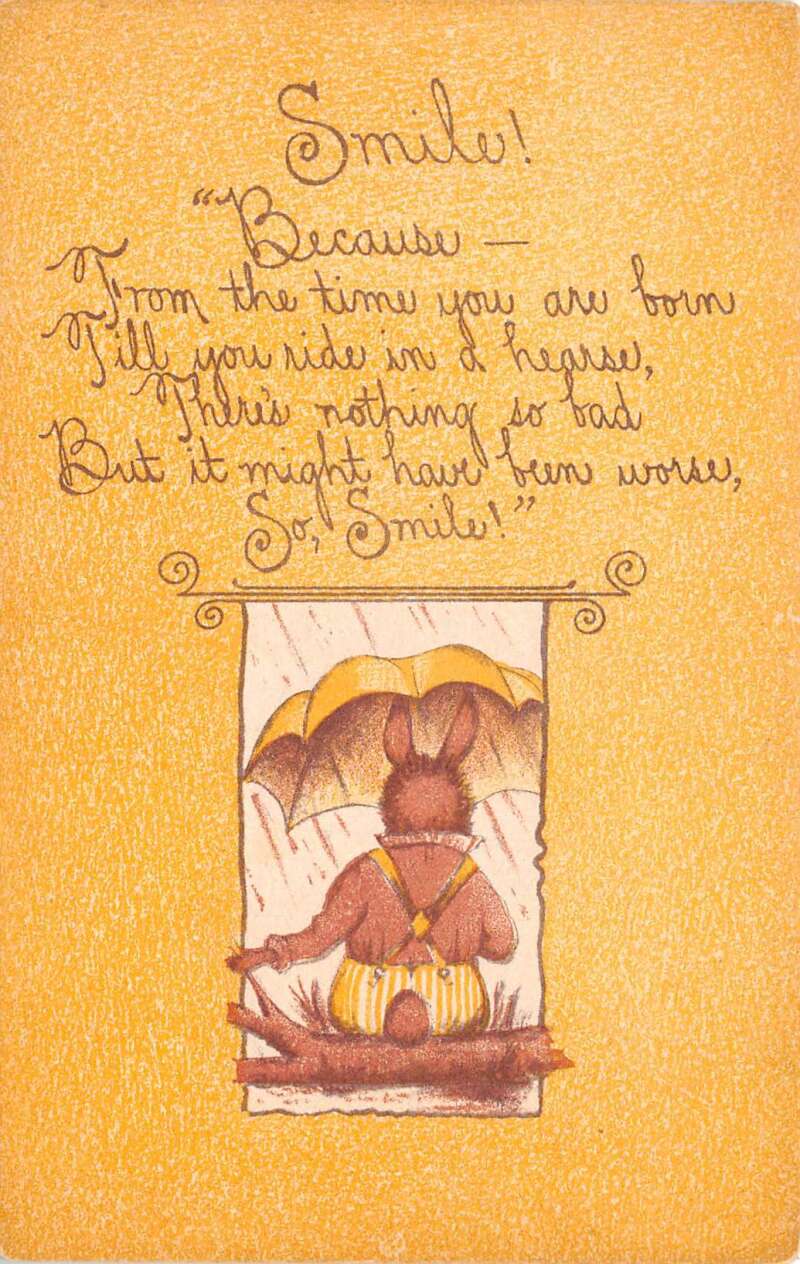 Smile!
"Because —
From the time you are born
Till you ride in a hearse,
There's nothing so bad
But it might have been worse,
So, Smile!"